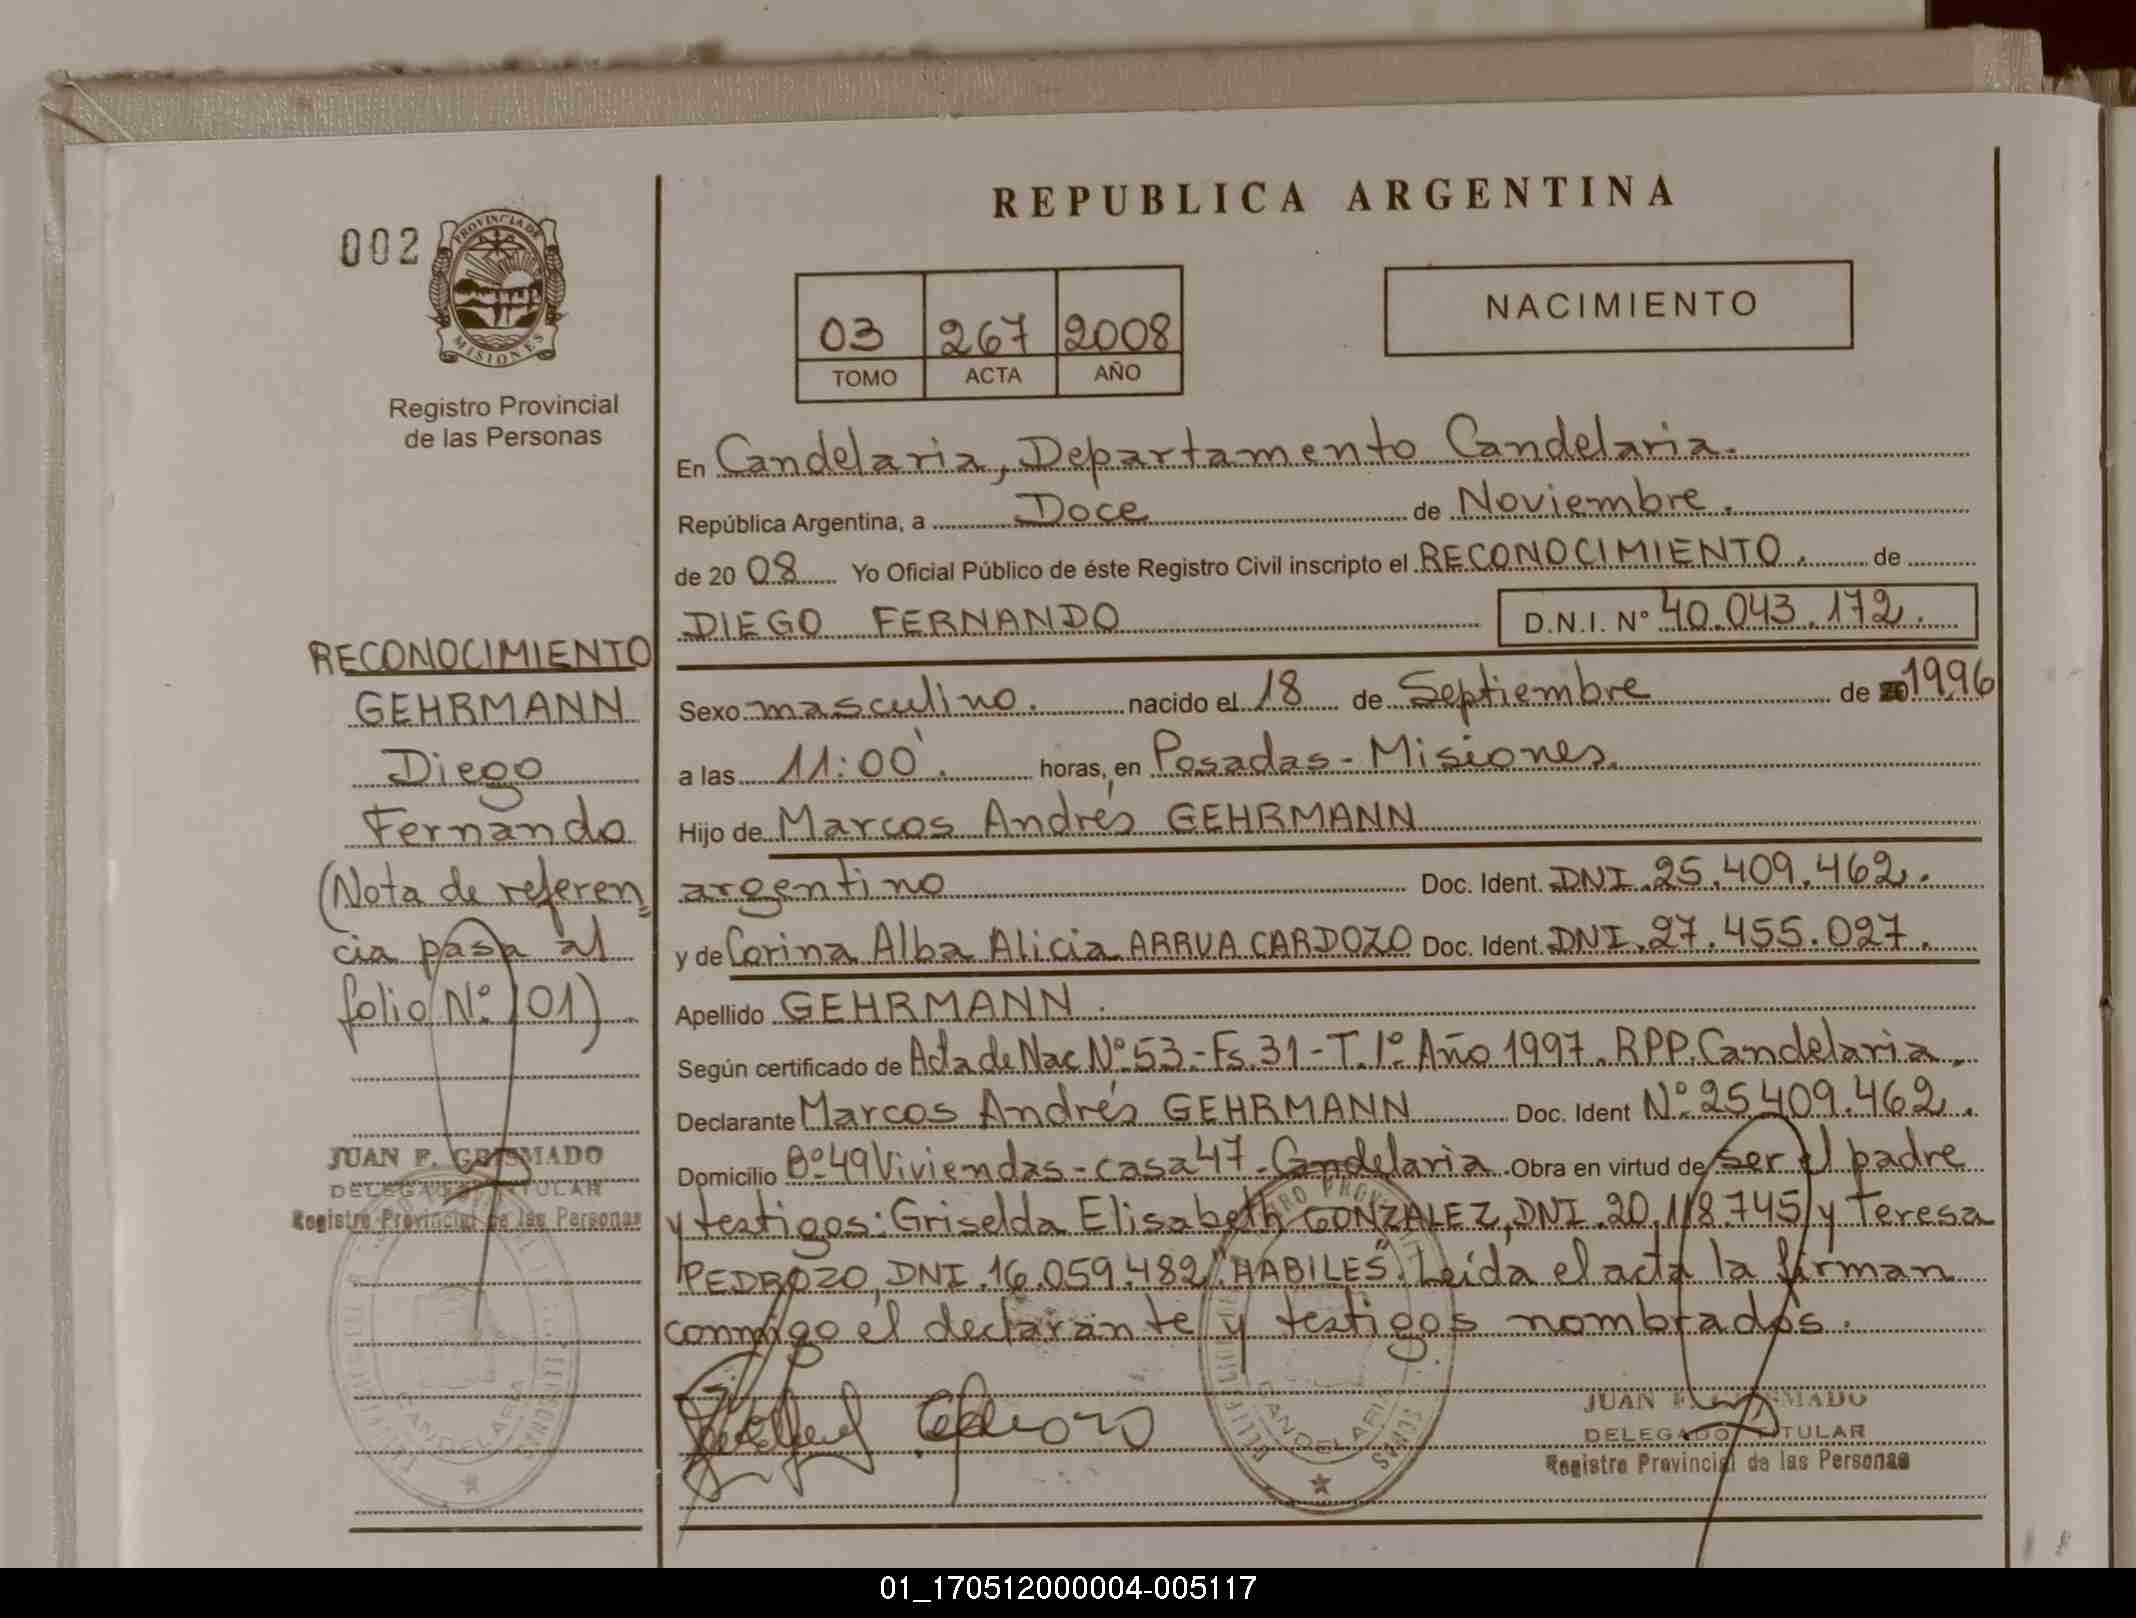 REPUBLICA ARGENTINA
002
PROVINCIA DE
MISIONES
Registro Provincial
de las Personas
03 267 2008
TOMO ACTA AÑO
NACIMIENTO
En Candelaria, Departamento Candelaria.
República Argentina, a Doce de Noviembre.
de 20 08 Yo Oficial Público de éste Registro Civil inscripto el RECONOCIMIENTO. de
DIEGO FERNANDO D.N.I. Nº 40.043.172.
Sexo masculino. nacido el 18 de Septiembre de 1996
a las 11:00'. horas, en Posadas - Misiones.
Hijo de Marcos Andrés GEHRMANN
argentino Doc. Ident. DNI. 25.409.462.
y de Corina Alba Alicia ARRUA CARDOZO Doc. Ident. DNI. 27.455.027.
Apellido GEHRMANN.
Según certificado de Acta de Nac Nº 53 - Fs. 31 - T. 1º Año 1997. RPP. Candelaria.
Declarante Marcos Andrés GEHRMANN Doc. Ident Nº 25409.462.
Domicilio Bº 49 Viviendas - casa 47 - Candelaria. Obra en virtud de ser el padre
y testigos: Griselda Elisabeth GONZALEZ, DNI. 20.118.745 y Teresa
PEDROZO, DNI. 16.059.482, "HABILES". Leída el acta la firman
conmigo el declarante y testigos nombrados.
RECONOCIMIENTO
GEHRMANN
Diego
Fernando
(Nota de referen=
cia pasa al
folio Nº 101)
JUAN F.
DELEGADO TITULAR
Registro Provincial de las Personas
CANDELARIA
CANDELARIA
MISIONES
JUAN F.
DELEGADO TITULAR
Registro Provincial de las Personas
01_170512000004-005117